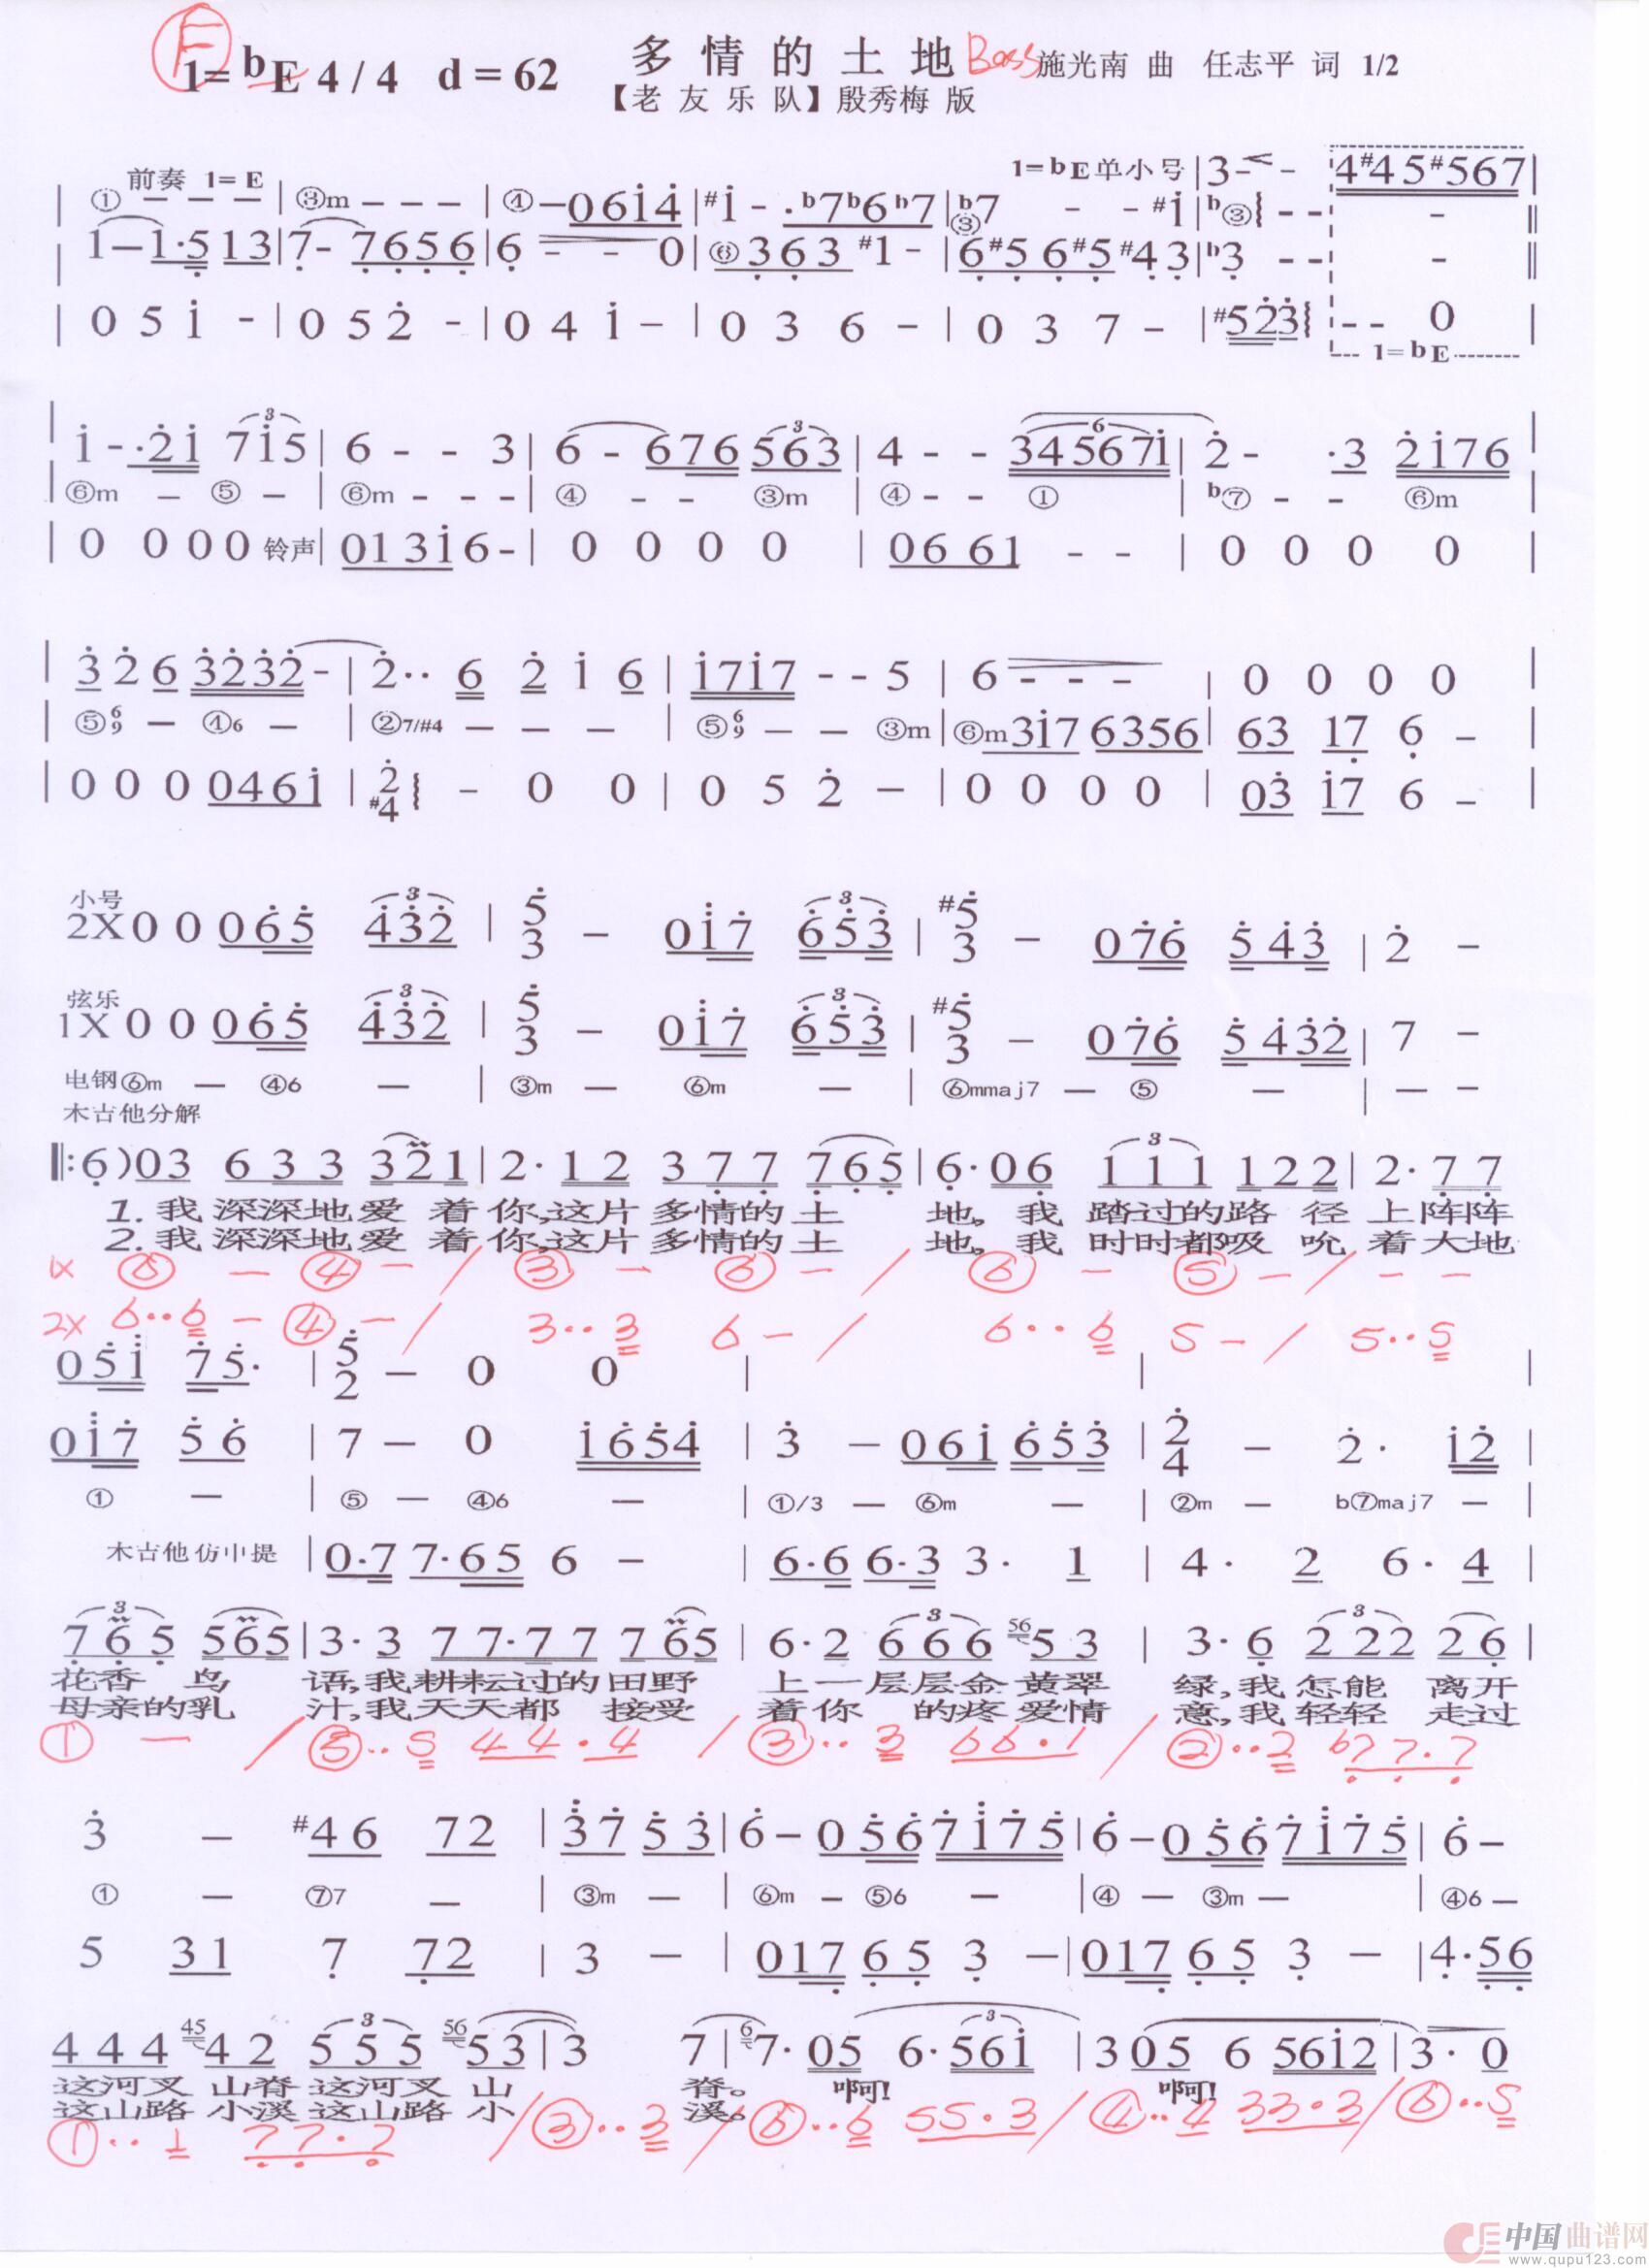 F
1= bE 4/4 d = 62 多情的土地 Bass 施光南 曲 任志平 词 1/2
【老友乐队】殷秀梅 版
前奏 1= E
1= bE 单小号 | 3 - - 4 #4 5 #5 6 7 |
① - - - | ③m - - - | ④ - 0 6 1 4 | #1 - · b7 b6 b7 | b7 - - #1 | b③ - - - ‖
1 - 1 · 5 1 3 | 7 - 7 6 5 6 | 6 - - 0 | ⑥ 3 6 3 #1 - | 6 #5 6 #5 #4 3 | b3 - - - ‖
| 0 5 1 - | 0 5 2 - | 0 4 1 - | 0 3 6 - | 0 3 7 - | #5 2 3 - - 0 |
1= bE
| 1 - · 2 1 7 1 5 | 6 - - 3 | 6 - 6 7 6 5 6 3 | 4 - - 3 4 5 6 7 1 | 2 - · 3 2 1 7 6 |
| ⑥m - ⑤ - | ⑥m - - - | ④ - - ③m | ④ - - ① | b⑦ - - ⑥m |
| 0 0 0 0 铃声 | 0 1 3 1 6 - | 0 0 0 0 | 0 6 6 1 - - | 0 0 0 0 |
| 3 2 6 3 2 3 2 - | 2 · · 6 2 1 6 | 1 7 1 7 - - 5 | 6 - - - | 0 0 0 0 |
| ⑤6/9 - ④6 - | ②7/#4 - - - | ⑤6/9 - - ③m | ⑥m 3 1 7 6 3 5 6 | 6 3 1 7 6 - |
| 0 0 0 0 4 6 1 | 2/#4 - 0 0 | 0 5 2 - | 0 0 0 0 | 0 3 1 7 6 - |
小号
2X 0 0 0 6 5 4 3 2 | 5/3 - 0 1 7 6 5 3 | #5/3 - 0 7 6 5 4 3 | 2 -
弦乐
1X 0 0 0 6 5 4 3 2 | 5/3 - 0 1 7 6 5 3 | #5/3 - 0 7 6 5 4 3 2 | 7 -
电钢 ⑥m - ④6 - | ③m - ⑥m - | ⑥mmaj7 - ⑤ - | - -
木吉他分解
‖: 6 ) 0 3 6 3 3 3 2 1 | 2 · 1 2 3 7 7 7 6 5 | 6 · 0 6 1 1 1 1 2 2 | 2 · 7 7
1. 我 深深地爱 着你,这片多情的土 地, 我 踏过的路 径 上阵阵
2. 我 深深地爱 着你,这片多情的土 地, 我 时时都吸 吮 着大地
1x ⑥ - ④ - / ③ - ⑥ - / ⑥ - ⑤ - / - -
2x 6 · · 6 - ④ - / 3 · · 3 6 - / 6 · · 6 5 - / 5 · · 5
0 5 1 7 5 · | 5/2 - 0 0 | | |
0 1 7 5 6 | 7 - 0 1 6 5 4 | 3 - 0 6 1 6 5 3 | 2/4 - 2 · 1 2 |
① - | ⑤ - ④6 - | ①/3 - ⑥m - | ②m - b⑦maj7 - |
木吉他仿中提 | 0 · 7 7 · 6 5 6 - | 6 · 6 6 · 3 3 · 1 | 4 · 2 6 · 4 |
7 6 5 5 6 5 | 3 · 3 7 7 · 7 7 7 6 5 | 6 · 2 6 6 6 56 5 3 | 3 · 6 2 2 2 2 6 |
花香 鸟 语,我耕耘过的田野 上一层层金黄翠 绿,我怎能 离开
母亲的乳 汁,我天天都 接受 着你 的疼爱情 意,我轻轻 走过
① - / ⑤ · · 5 4 4 · 4 / ③ · · 3 6 6 · 1 / ② · · 2 b7 7 · 7
3 - #4 6 7 2 | 3 7 5 3 | 6 - 0 5 6 7 1 7 5 | 6 - 0 5 6 7 1 7 5 | 6 -
① - ⑦7 - | ③m - | ⑥m - ⑤6 - | ④ - ③m - | ④6 -
5 3 1 7 7 2 | 3 - | 0 1 7 6 5 3 - | 0 1 7 6 5 3 - | 4 · 5 6
4 4 4 45 4 2 5 5 5 56 5 3 | 3 7 | 6 7 · 0 5 6 · 5 6 1 | 3 0 5 6 5 6 1 2 | 3 · 0
这河叉 山脊这河叉 山 脊。 啊! 啊!
这山路 小溪这山路 小 溪。
① · · 1 7 7 · 7 / ③ · · 3 / ⑥ · · 6 5 5 · 3 / ④ · · 4 3 3 · 3 / ⑥ · · 5
中国曲谱网
www.qupu123.com